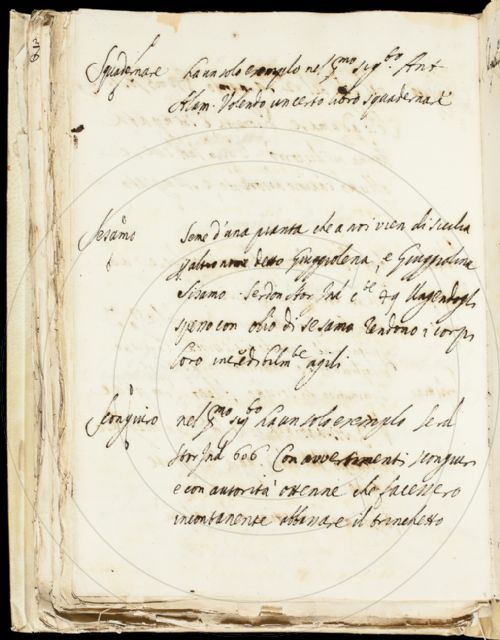 Squadernare ha un solo exemplo nel p.mo sig.to Ant
Alam. Volendo un certo libro squadernare
Sesamo Seme d'una pianta che a noi vien di Sicilia
detto Giuggiolena, e Giuggiolina
Sisamo. Serdon. Stor. Ind. Ungendogli
spesso con olio di sesamo rendono i corpi
loro incredibilm.te agili
Scongiuro nel p.mo sig.to ha un solo exemplo Serd.
Stor. Ind. 606 Con avvertimenti scongiuri
e con autorità ottenne che facessero
incontanente abbassare il trinchetto